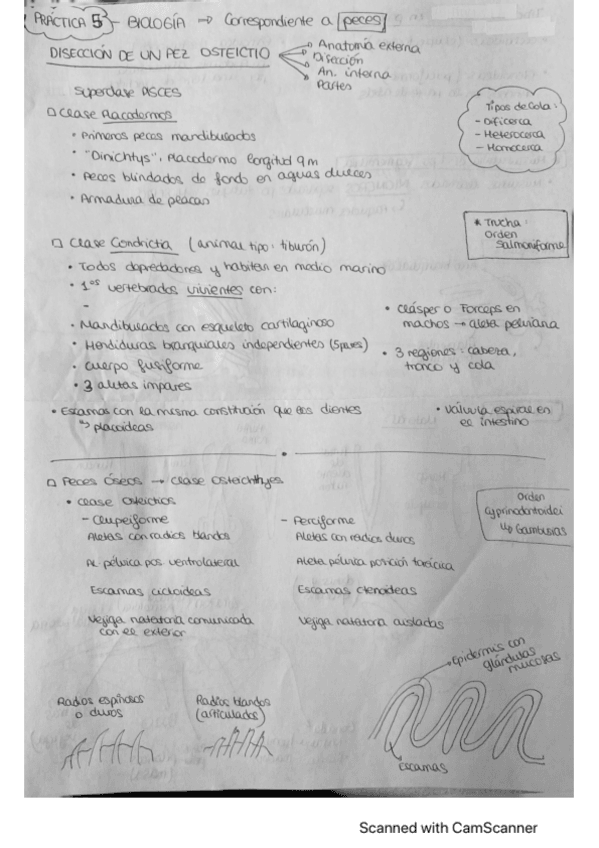 PRÁCTICA 5 - BIOLOGÍA → Correspondiente a peces
DISECCIÓN DE UN PEZ OSTEICTIO
Anatomía externa
Disección
An. interna
Partes
Superclase PISCES
Tipos de Cola:
- Dificerca
- Heterocerca
- Homocerca
□ Clase Placodermos
• Primeros peces mandibulados
• "Dinichtys", Placodermo longitud 9 m
• Peces blindados de fondo en aguas dulces
• Armadura de placas
* Trucha:
Orden
Salmoniforme
□ Clase Condrictia (animal tipo: tiburón)
• Todos depredadores y habitan en medio marino
• 1ºs vertebrados vivientes con:
-
• Mandibulados con esqueleto cartilaginoso
• Hendiduras branquiales independientes (5 pares)
• Cuerpo fusiforme
• 3 aletas impares
• Clásper o Forceps en
machos → aleta pelviana
• 3 regiones: cabeza,
tronco y cola
• Escamas con la misma constitución que los dientes
↳ placoideas
• Válvula espiral en
el intestino
□ Peces Óseos → Clase Osteichthyes
• Clase Osteictios
- Clupeiforme
Aletas con radios blandos
Al. pélvica pos ventrolateral
Escamas cicloideas
Vejiga natatoria comunicada
con el exterior
- Perciforme
Aletas con radios duros
Aleta pélvica posición torácica
Escamas ctenoideas
Vejiga natatoria aisladas
Orden
Cyprinodontoidei
↳ Gambusias
Radios espinosos
o duros
Radios blandos
(articulados)
Epidermis con
glándulas
mucosas
Escamas
Scanned with CamScanner